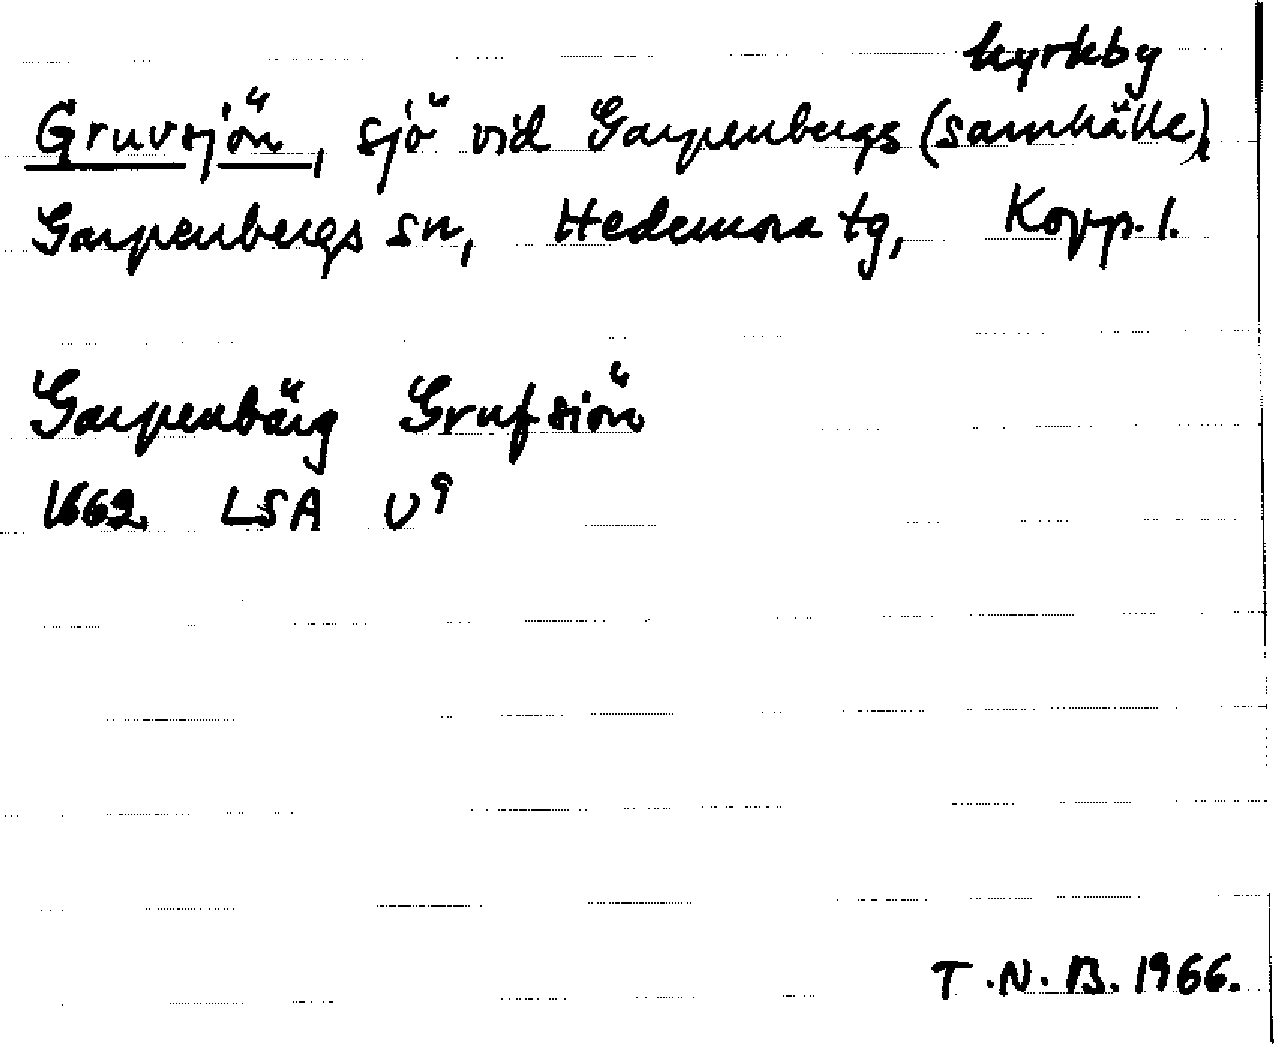 kyrkby
Gruvsjön, sjö vid Garpenbergs (samhälle),
Garpenbergs sn, Hedemora tg, Kopp. l.
Garpenbärg Grufsiön
1662 LSA U⁹
T.N.B. 1966.